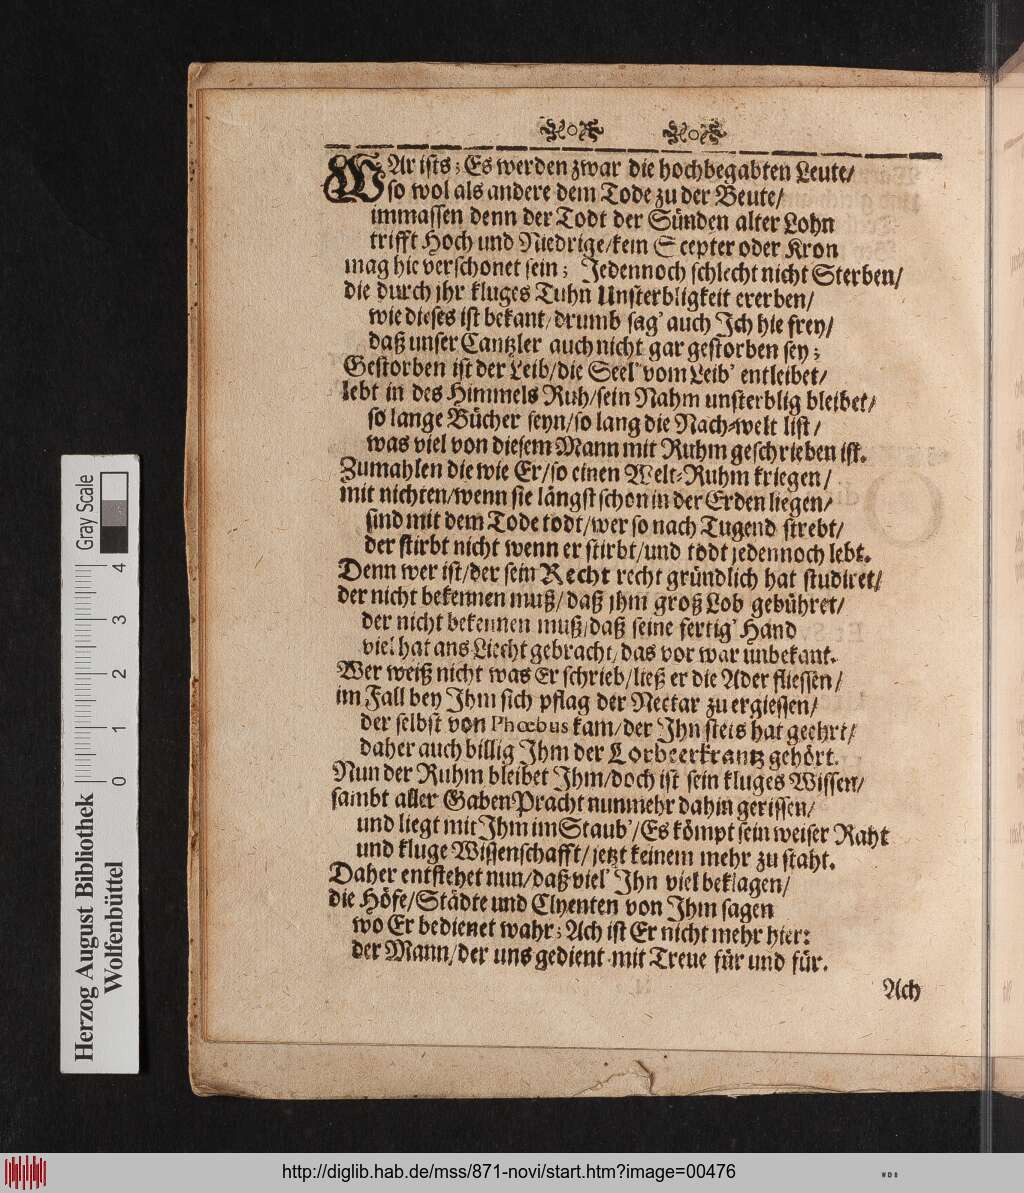 WAr ists; Es werden zwar die hochbegabten Leute/
so wol als andere dem Tode zu der Beute/
immassen denn der Todt der Sünden alter Lohn
trifft Hoch und Niedrige/kein Scepter oder Kron
mag hie verschonet sein; Jedennoch schlecht nicht Sterben/
die durch ihr kluges Tuhn Unsterbligkeit ererben/
wie dieses ist bekant/drumb sag' auch Ich hie frey/
daß unser Cantzler auch nicht gar gestorben sey;
Gestorben ist der Leib/die Seel' vom Leib' entleibet/
lebt in des Himmels Ruh/sein Nahm unsterblig bleibet/
so lange Bücher seyn/so lang die Nach-welt list/
was viel von diesem Mann mit Ruhm geschrieben ist.
Zumahlen die wie Er/so einen Welt-Ruhm kriegen/
mit nichten/wenn sie längst schon in der Erden liegen/
sind mit dem Tode todt/wer so nach Tugend strebt/
der stirbt nicht wenn er stirbt/und todt jedennoch lebt.
Denn wer ist/der sein Recht recht gründlich hat studiret/
der nicht bekennen muß/daß ihm groß Lob gebühret/
der nicht bekennen muß/daß seine fertig' Hand
viel hat ans Liecht gebracht/das vor war unbekant.
Wer weiß nicht was Er schrieb/ließ er die Ader fliessen/
im Fall bey Ihm sich pflag der Nectar zu ergiessen/
der selbst von Phœbus kam/der Ihn stets hat geehrt/
daher auch billig Ihm der Lorbeerkrantz gehört.
Nun der Ruhm bleibet Ihm/doch ist sein kluges Wissen/
sambt aller Gaben Pracht nunmehr dahin gerissen/
und liegt mit Ihm im Staub'/Es kömpt sein weiser Raht
und kluge Wissenschafft/jetzt keinem mehr zu staht.
Daher entstehet nun/daß viel' Ihn viel beklagen/
die Höfe/Städte und Clyenten von Ihm sagen
wo Er bedienet wahr; Ach ist Er nicht mehr hier:
der Mann/der uns gedient mit Treue für und für.
Ach
Gray Scale
0 1 2 3 4
Herzog August Bibliothek
Wolfenbüttel
http://diglib.hab.de/mss/871-novi/start.htm?image=00476
WDB